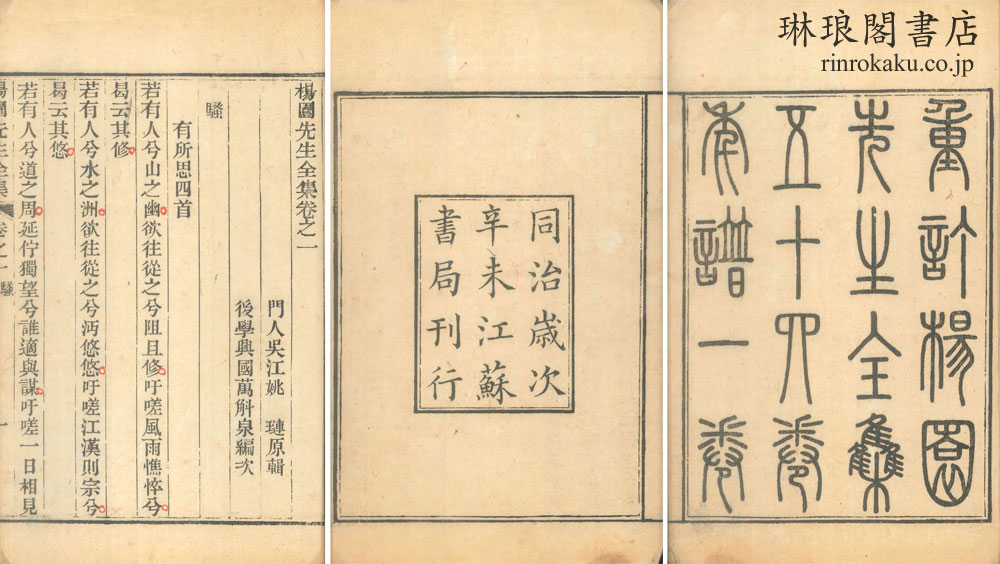 琳琅閣書店
rinrokaku.co.jp
重訂楊園
先生全集
五十四卷
年譜一卷
同治歲次
辛未江蘇
書局刊行
楊園先生全集卷之一
門人吳江姚　璉原輯
後學興國萬斛泉編次
騷
有所思四首
若有人兮山之幽欲往從之兮阻且修吁嗟風雨憔悴兮
曷云其修
若有人兮水之洲欲往從之兮沔悠悠吁嗟江漢則宗兮
曷云其悠
若有人兮道之周延佇獨望兮誰適與謀吁嗟一日相見
楊園先生全集 卷之一 騷 一